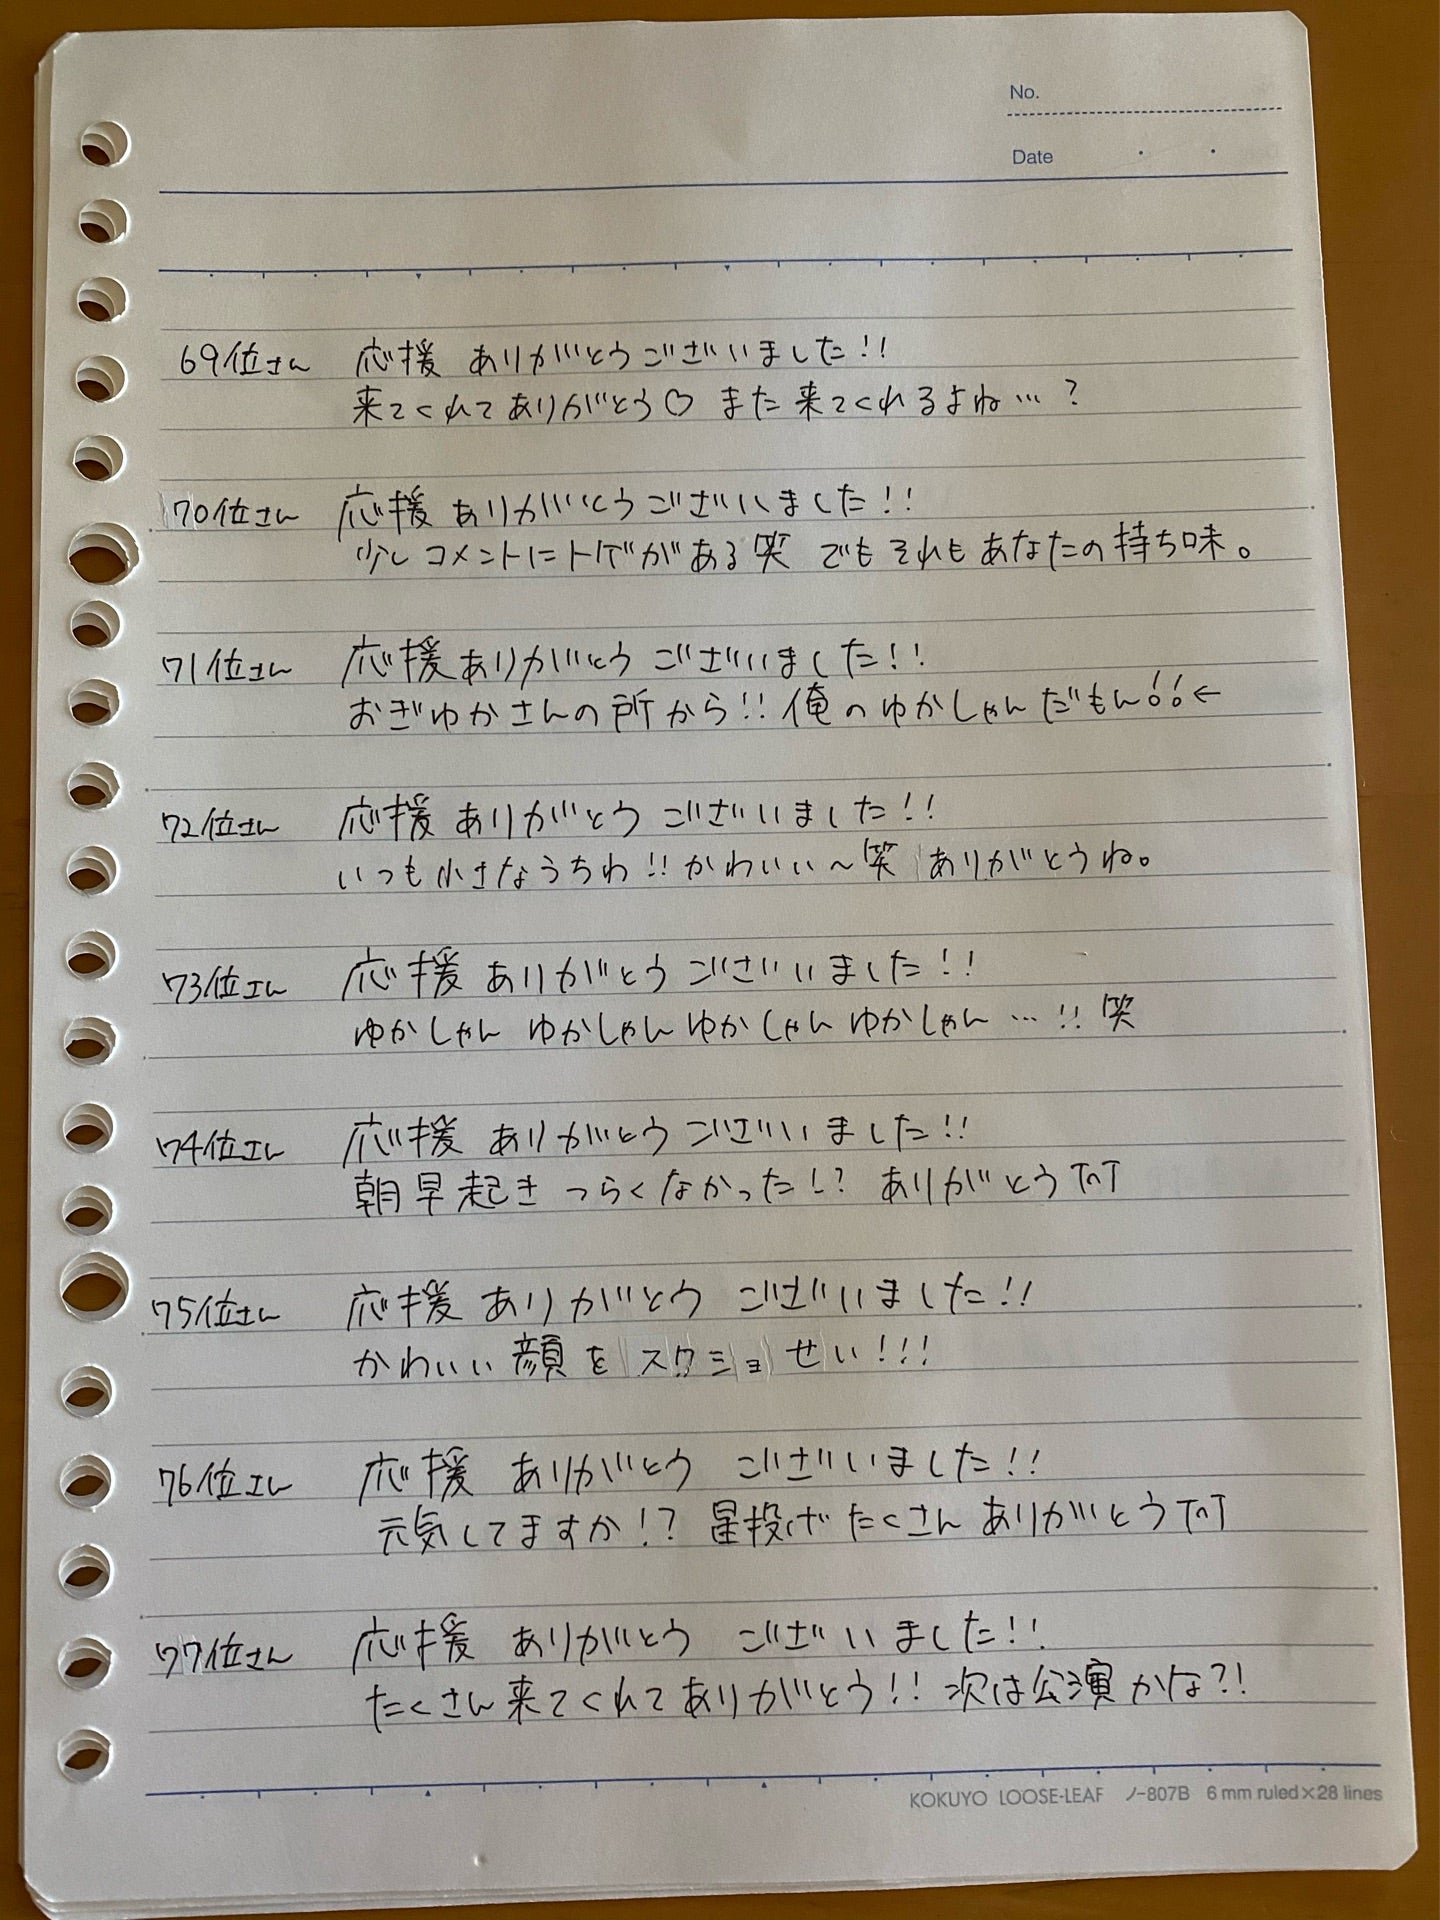 No.
Date
69位さん 応援 ありがとうございました!!
来てくれてありがとう♡ また来てくれるよね…?
70位さん 応援 ありがとうございました!!
少しコメントにトゲがある笑 でもそれもあなたの持ち味。
71位さん 応援ありがとう ございました!!
おぎゆかさんの所から!! 俺のゆかしゃんだもん!!←
72位さん 応援 ありがとう ございました!!
いつも小さなうちわ!! かわいい〜笑 ありがとうね。
73位さん 応援 ありがとう ございました!!
ゆかしゃん ゆかしゃん ゆかしゃん ゆかしゃん …!! 笑
74位さん 応援 ありがとう ございました!!
朝早起き つらくなかった!? ありがとうTnT
75位さん 応援 ありがとう ございました!!
かわいい顔を スクショせい!!!
76位さん 応援 ありがとう ございました!!
元気してますか!? 星投げ たくさん ありがとうTnT
77位さん 応援 ありがとう ございました!!
たくさん来てくれてありがとう!! 次は公演かな?!
KOKUYO LOOSE-LEAF ノ-807B 6 mm ruled×28 lines